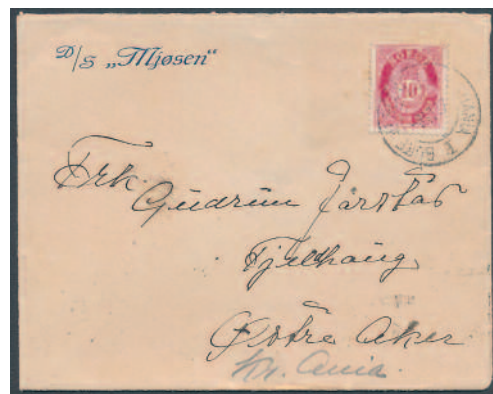 D/S „Mjøsen“
10
Frk.
Gudrun Jårstad
Fjellhaug
Østre Aker
Kr. ania.